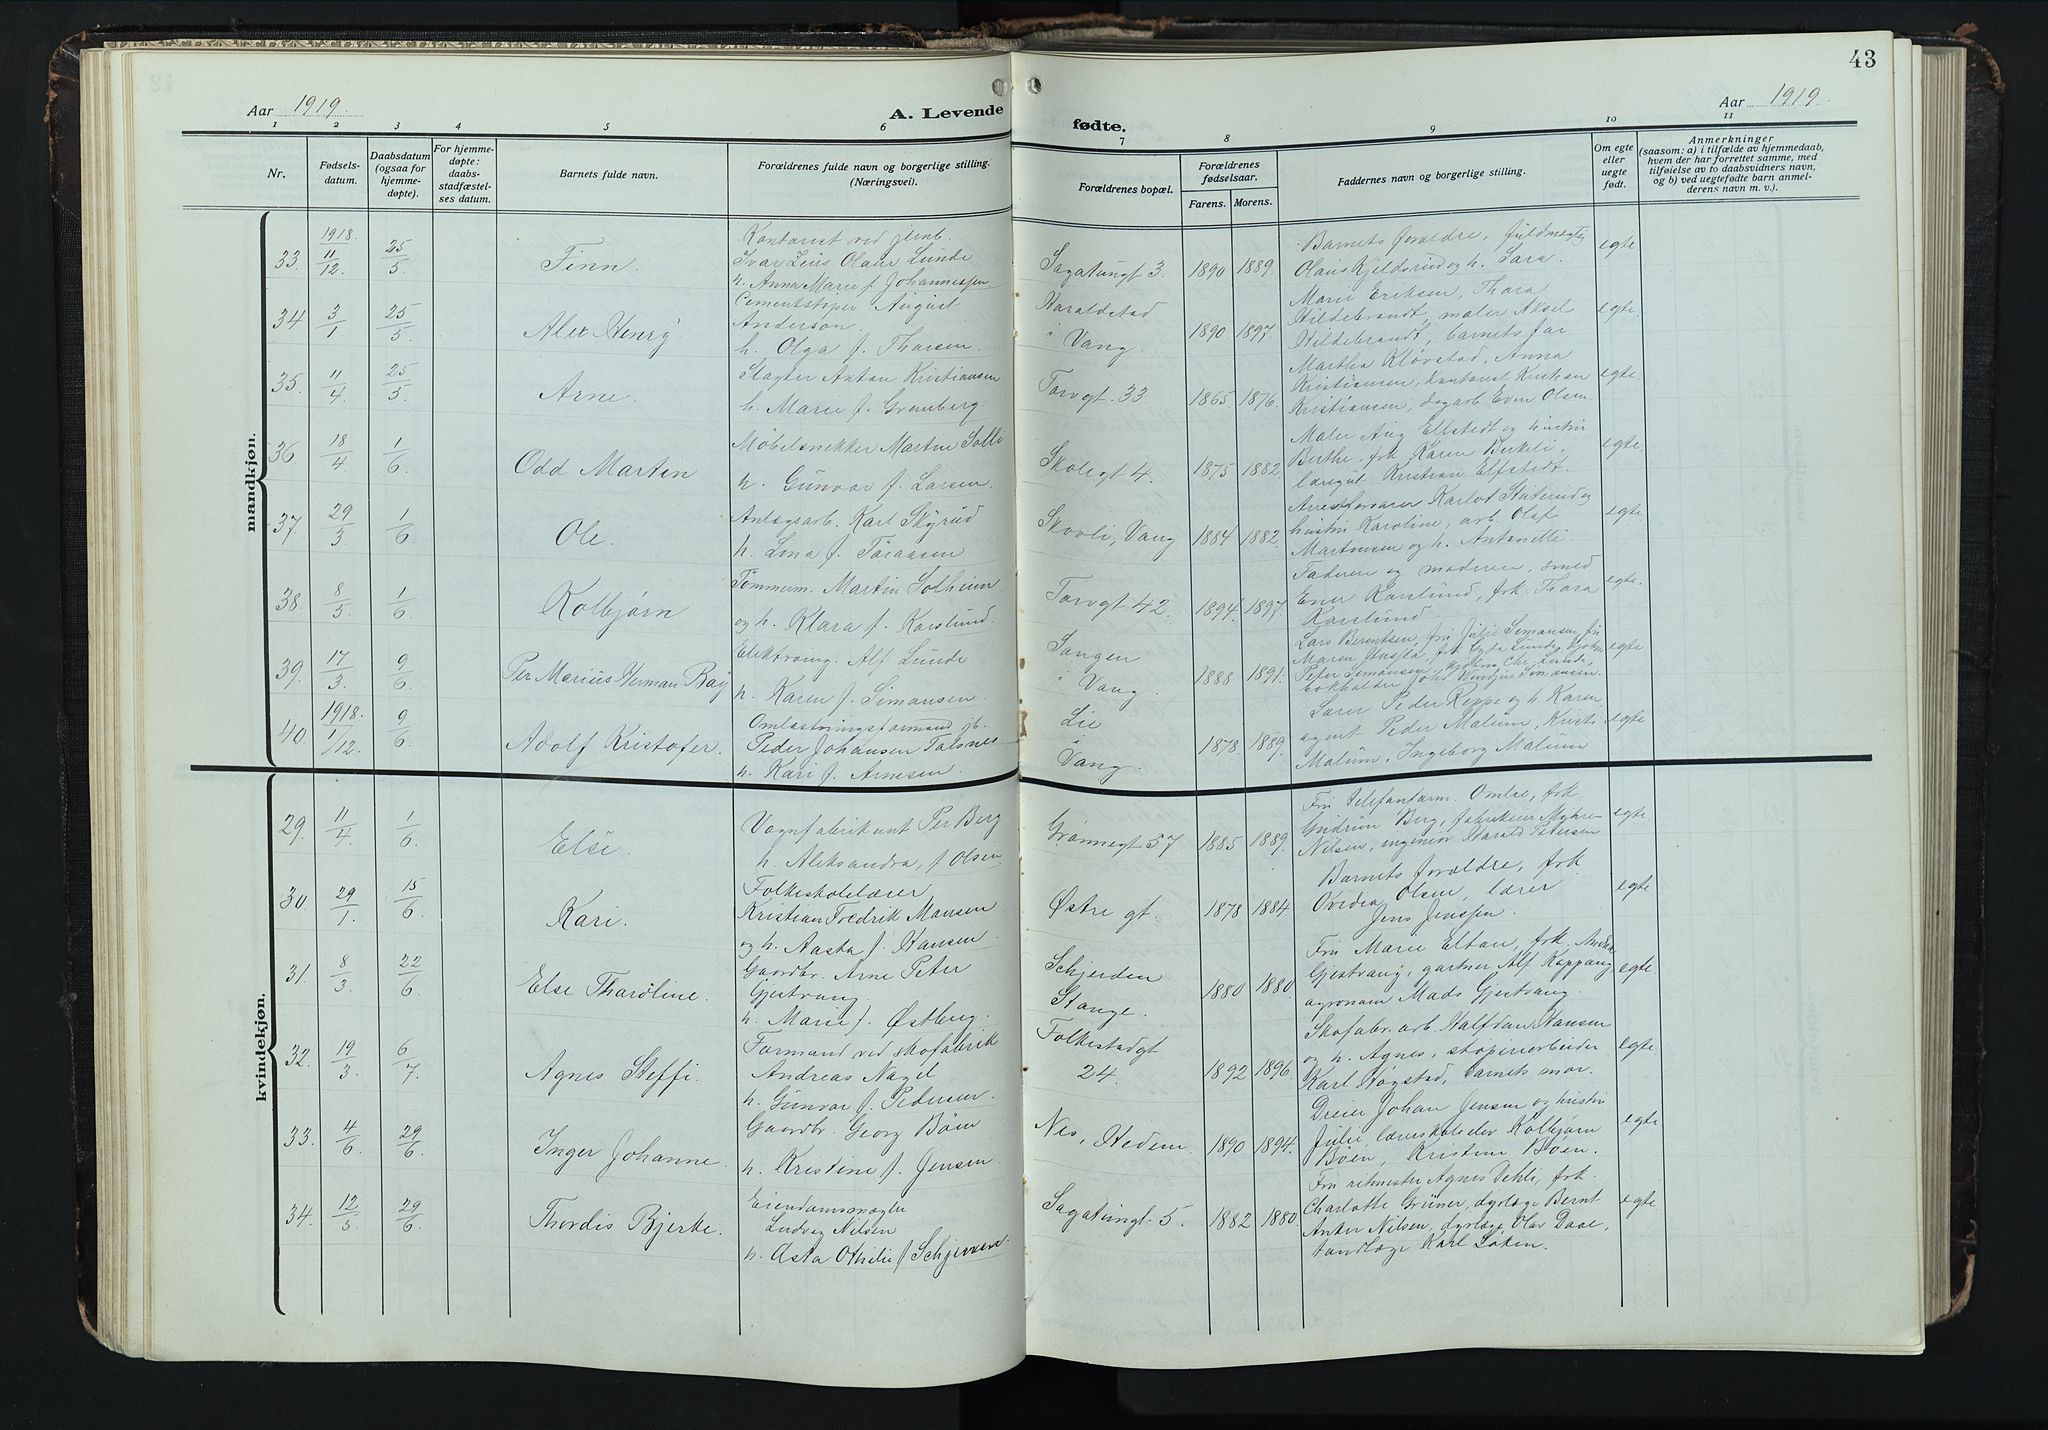 43
Aar 1919
A. Levende fødte.
Aar 1919
1 2 3 4 5 6 7 8 9 10 11
Nr.
Fødsels-
datum.
Daabsdatum
(ogsaa for
hjemme-
døpte).
For hjemme-
døpte:
daabs-
stadfæstel-
ses datum.
Barnets fulde navn.
Forældrenes fulde navn og borgerlige stilling.
(Næringsvei).
Forældrenes bopæl.
Forældrenes
fødselsaar.
Farens. Morens.
Faddernes navn og borgerlige stilling.
Om egte
eller
uegte
født.
Anmerkninger
(saasom: a) i tilfælde av hjemmedaab,
hvem der har forrettet samme, med
tilføielse av to daabsvidners navn,
og b) ved uegtefødte barn anmel-
derens navn m. v.).
mandkjøn.
33. 1918. 11/12. 25/5 Finn.
Kontorist ved jernb.
Ivar Leus Olaus Lunde
h. Anna Marie f. Johannessen
Sagatungt 3. 1890 1889.
Barnets forældre, fuldmægtig
Olaus Kjeldsrud og h. Lara.
egte
34 3/1 25/5 Alex Henry
Cementstøper August
Anderson.
h. Olga f. Thorsen.
Haraldstad
i Vang. 1890 1897.
Marie Eriksen, Thora
Hildebrandt, maler Aksel
Hildebrandt, barnets far
egte.
35. 11/4 25/5 Arne.
Slagter Anton Kristiansen
h. Marie f. Grønberg.
Torvgt. 33 1865 1876.
Martha Kløvstad, Anna
Kristiansen, kontorist Kristian
Kristiansen, dagarb. Even Olsen.
egte.
36 18/4 1/6 Odd Martin
Møbelsnekker Martin Solli
h. Gunvor f. Larsen.
Skolegt 4. 1875 1882
Maler Aug Elfstedt og hustru
Berthe, frk Karen Birkeli,
læregut Kristian Elfstedt.
egte.
37. 29/3 1/6 Ole.
Anlægsarb. Karl Skyrud
h. Lina f. Toraasen
Skovli, Vang 1884 1882.
Arrestforvarer Karlot Stuterud og
hustru Karoline, arb. Olaf
Martinsen og h. Antonette.
egte.
38. 8/5 1/6 Kolbjørn
Tømmerm. Martin Solheim
og h. Klara f. Korslund.
Torvgt 42. 1894. 1897.
Faderen og moderen, smed
Ener Korslund, frk. Thora
Korslund
egte.
39. 17/3. 9/6 Per Marius Herman Bay
Elektromg. Alf Lunde
h. Karen f. Simonsen.
Sangen
i Vang. 1888 1891.
Lars Berentsen, fru Julie Simonsen, fru
Maren
Peter Simonsen, Chr. Lunde,
Simonsen.
egte
40. 1918. 1/12. 9/6 Adolf Kristofer.
Omlastningsformand gb.
Peder Johansen Talsnes
h. Kari f. Arnesen.
Lie
i
Vang. 1878. 1889.
Lærer Peder Reppe og h. Karen
agent Peder Malum, Kristi
Malum, Ingeborg Malum
egte
kvindekjøn.
29. 11/4 1/6 Else.
Vognfabrikant Per Berg
h. Aleksandra, f. Olsen.
Grønnegt 57 1885 1889.
Fru telefonform. Omlie, frk
Gudrun Berg, fabrikeier Myhre-
Nilsen, ingeniør Harald Pedersen
egte
30. 29/1. 15/6 Kari.
Folkeskolelærer
Kristian Fredrik Monsen
og h. Aasta f. Hansen
Østre gt. 1878 1884.
Barnets forældre, frk.
Ovidia Olsen, lærer
Jens Jenssen.
egte
31. 8/3 22/6 Else Thoroline.
Gaardbr. Arne Peter
Gjestvang.
h. Marie f. Østberg.
Schjerden
Stange. 1880 1880.
Fru Marie Elton, frk. Andrea
Gjestvang, gartner Alf Koppang
agronom Mads Gjestvang.
egte
32. 19/3 6/7 Agnes Steffi.
Formand ved skofabrik
Andreas Nagel
h. Gunvor f. Pedersen
Folkestadgt
24. 1892 1896.
Skofabr. arb. Halfdan Hansen
og h. Agnes, støperiarbeider
Karl Høgstad, barnets mor.
egte.
33. 4/6 29/6 Inger Johanne.
Gaardbr. Georg Bøen
h. Kristine f. Jensen.
Nes, Hedem. 1890 1894.
Dreier Johan Jensen og hustru
Julie, lærerskoleelev Kolbjørn
Bøen, Kristine Bøen.
egte
34. 12/5 29/6 Thordis Bjerke.
Eiendomsmægler
Ludvig Nilsen
h. Asta Othilie f Schjerven.
Sagatungt. 5. 1882 1880
Fru ritmester Agnes Dehli, frk.
Charlotte Grüner, dyrlæge Bernt
Anker Nilsen, dyrlæge Olav Daae,
tandlæge Karl Løken.
egte